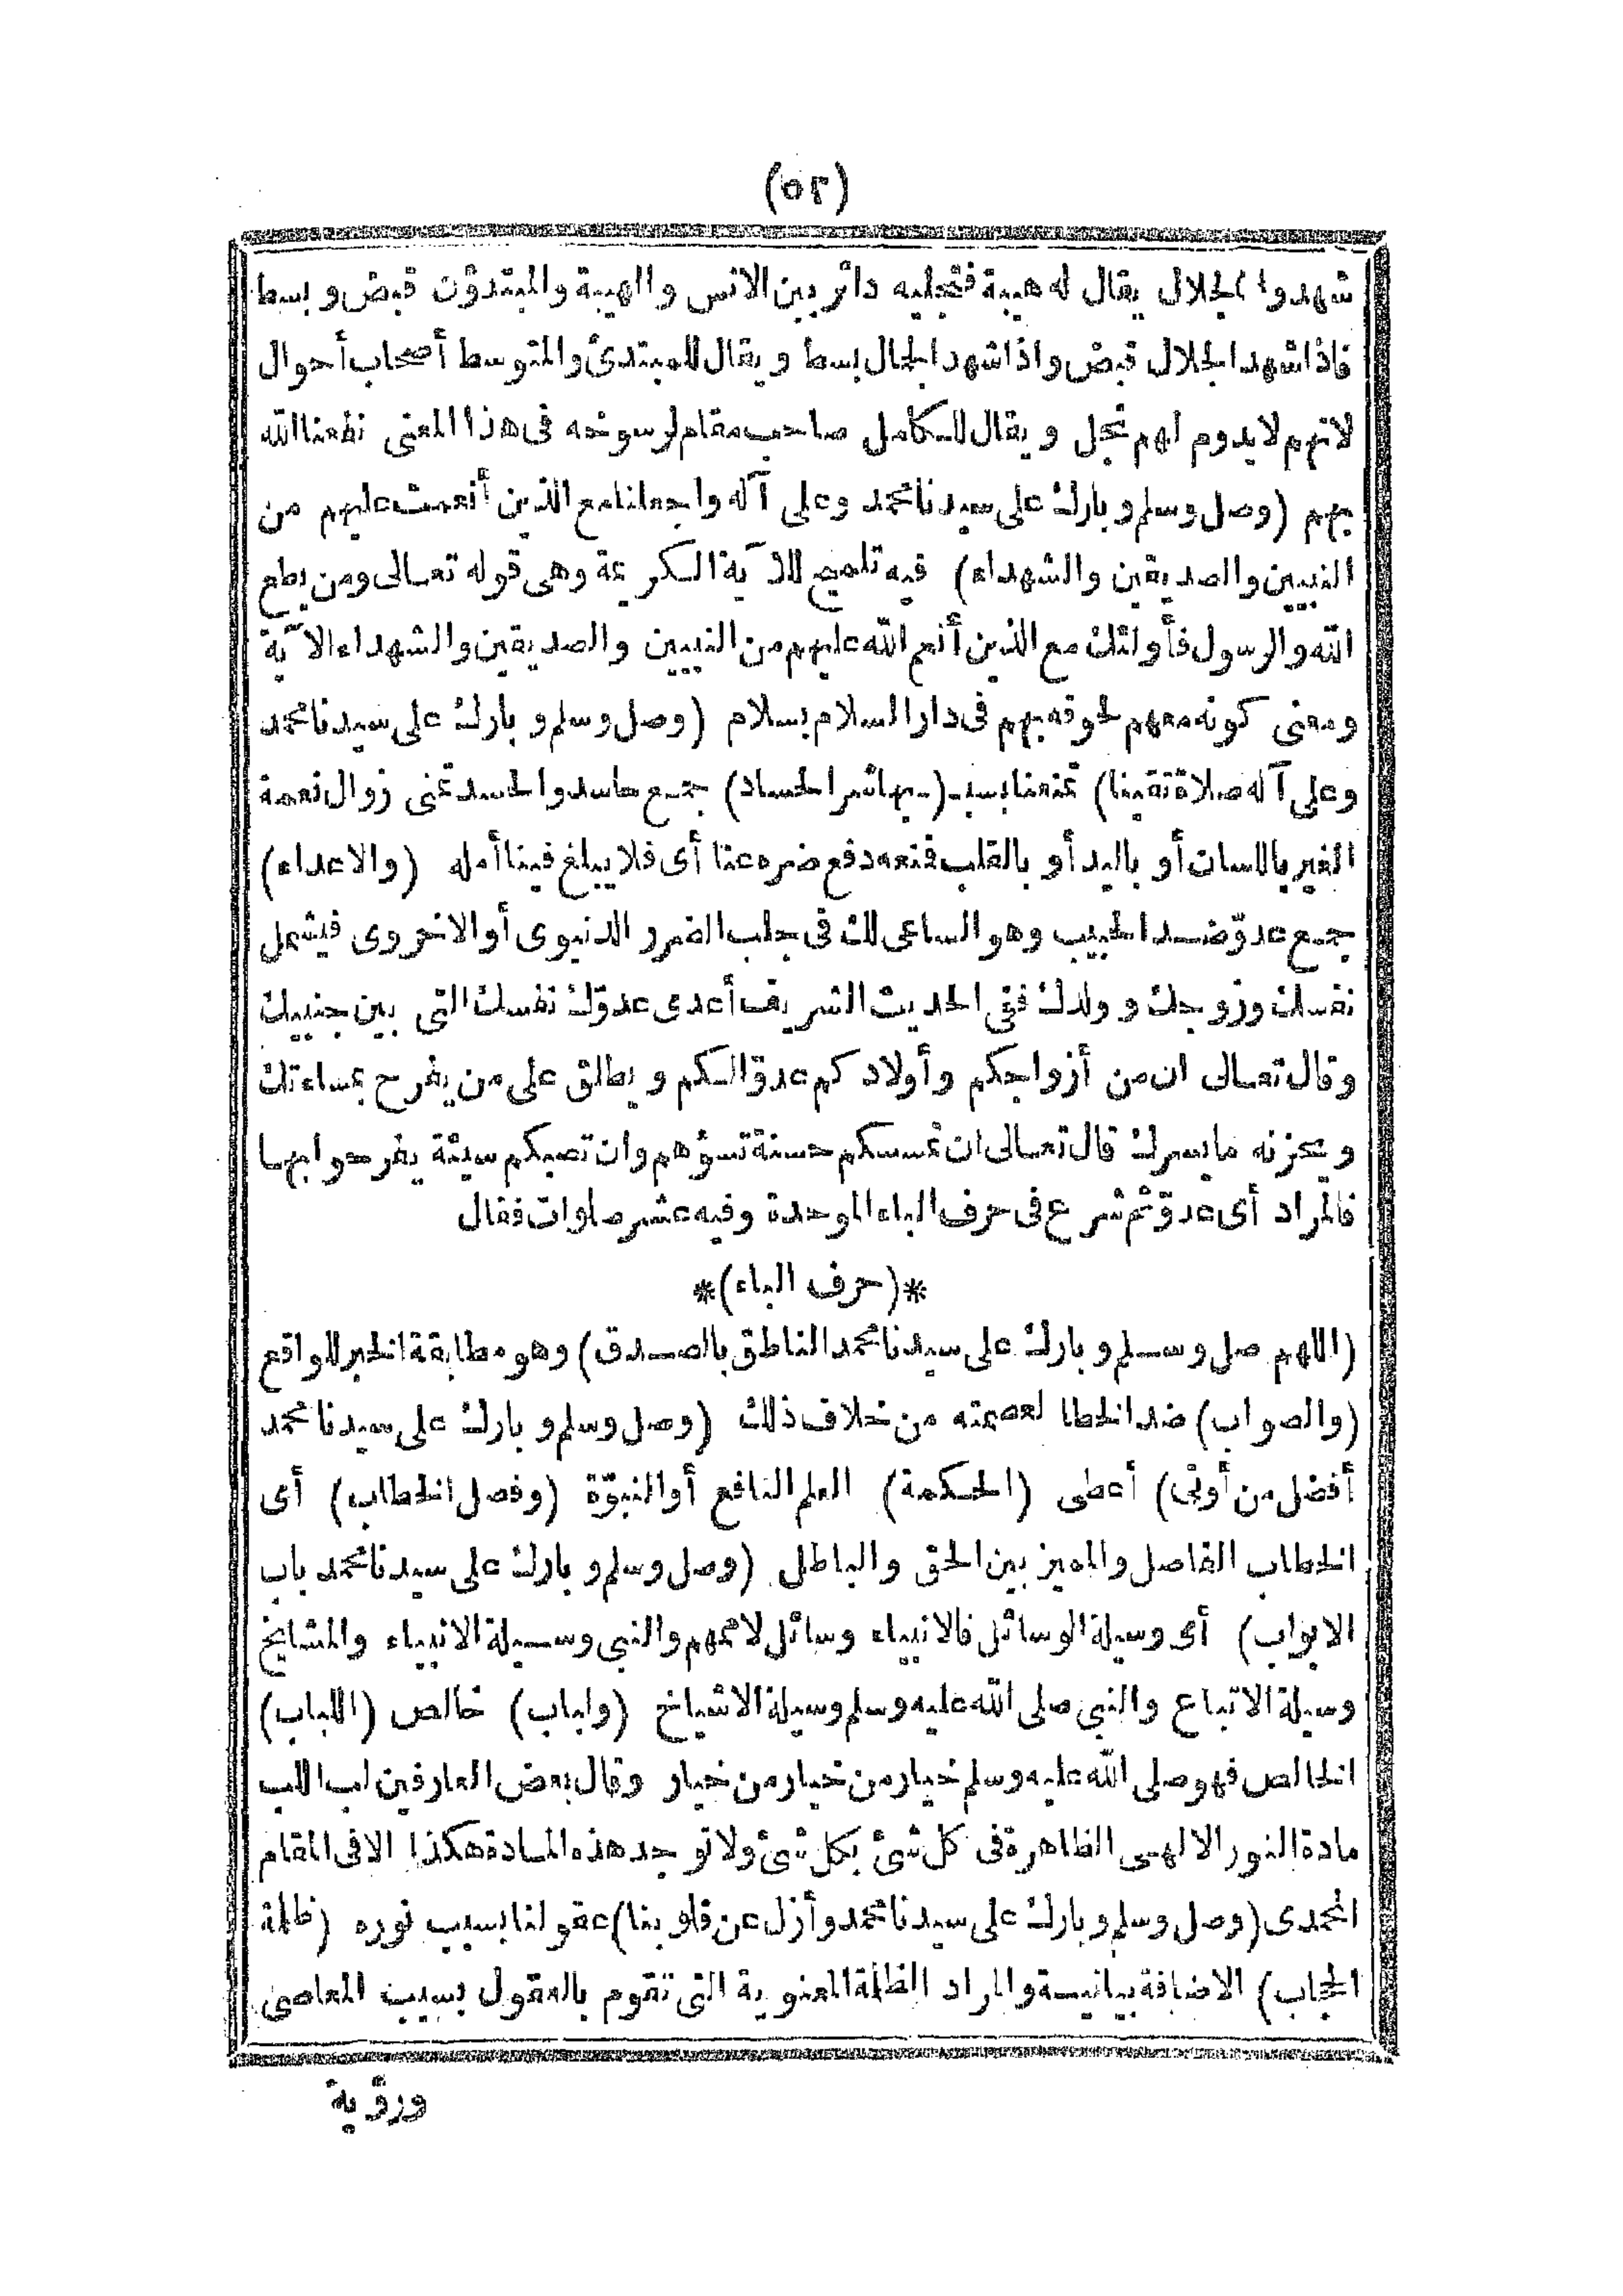 (٥٢)
شهدوا الجلال يقال له هيبة فتجليه دائر بين الانس والهيبة والمبتدؤن قبض وبسط
فاذا شهد الجلال قبض واذا شهد الجمال بسط ويقال للمبتدئ والمتوسط أصحاب أحوال
لانهم لا يدوم لهم تجل ويقال للكامل صاحب مقام لرسوخه فى هذا المعنى نفعنا الله
بهم (وصل وسلم وبارك على سيدنا محمد وعلى آله واجعلنا مع الذين أنعمت عليهم من
النبيين والصديقين والشهداء) فيه تلميح للآية الكريمة وهى قوله تعالى ومن يطع
الله والرسول فأولئك مع الذين أنعم الله عليهم من النبيين والصديقين والشهداء الآية
ومعنى كونه معهم لحوقه بهم فى دار السلام بسلام (وصل وسلم وبارك على سيدنا محمد
وعلى آله صلاة تقينا) تمنعنا بسبـ (ـبها شر الحساد) جمع حاسد والحسد تمنى زوال نعمة
الغير باللسان أو باليد أو بالقلب فنعه دفع ضره عنا أى فلا يبلغ فينا أمله (والاعداء)
جمع عدوّ ضد الحبيب وهو الساعى لك فى جلب الضرر الدنيوى أو الاخروى فيشمل
نفسك وزوجك وولدك ففى الحديث الشريف أعدى عدوّك نفسك التى بين جنبيك
وقال تعالى ان من أزواجكم وأولادكم عدوّا لكم ويطلق على من يفرح بمساءتك
ويحزنه ما يسرك قال تعالى ان تمسسكم حسنة تسؤهم وان تصبكم سيئة يفرحوا بها
فالمراد أى عدوّ ثم شرع فى حرف الباء الموحدة وفيه عشر صلوات فقال
*(حرف الباء)*
(اللهم صل وسلم وبارك على سيدنا محمد الناطق بالصدق) وهو مطابقة الخبر للواقع
(والصواب) ضد الخطا لعصمته من خلاف ذلك (وصل وسلم وبارك على سيدنا محمد
أفضل من أوتى) أعطى (الحكمة) العلم النافع أو النبوّة (وفصل الخطاب) أى
الخطاب الفاصل والمميز بين الحق والباطل (وصل وسلم وبارك على سيدنا محمد باب
الابواب) أى وسيلة الوسائل فالانبياء وسائل لاممهم والنبى وسيلة الانبياء والمشايخ
وسيلة الاتباع والنبى صلى الله عليه وسلم وسيلة الاشياخ (ولباب) خالص (اللباب)
الخالص فهو صلى الله عليه وسلم خيار من خيار من خيار وقال بعض العارفين لب اللب
مادة النور الالهى الظاهرة فى كل شئ بكل شئ ولا توجد هذه المادة هكذا الا فى المقام
المحمدى (وصل وسلم وبارك على سيدنا محمد وأزل عن قلوبنا) عقولنا بسبب نوره (ظلمة
الحجاب) الاضافة بيانية والمراد الظلمة المعنوية التى تقوم بالعقول بسبب المعاصى
ورؤية